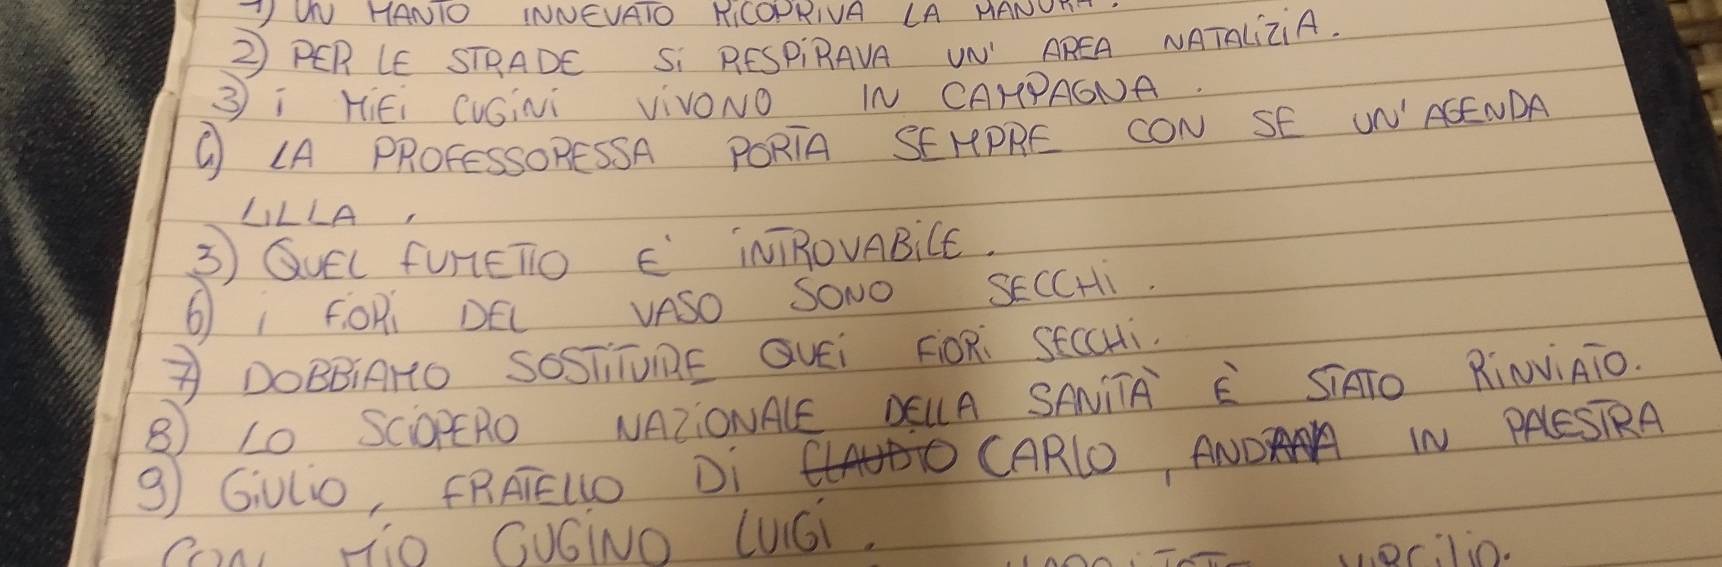 1) UN MANTO INNEVATO RICOPRIVA LA
2) PER LE STRADE Si RESPiRAVA UN' AREA NATALiZiA.
3) i MiEi CUGiNi ViVONO IN CAMPAGNA.
4) LA PROFESSORESSA PORTA SEMPRE CON SE UN' AGENDA
LILLA.
5) QUEL FUMETTO E' iNTROVABiLE.
6) i FiORi DEL VASO SONO SECCHi.
7) DOBBiAMO SOSTiTUiRE QUEi FiORi SECCHi.
8) LO SCiOPERO NAZiONALE DELLA SANiTÀ È STATO RiNViATO.
9) GiULiO, FRATELLO Di CLAUDIO CARLO, ANDAVA IN PALESTRA
CON MiO CUGiNO LUiGi.